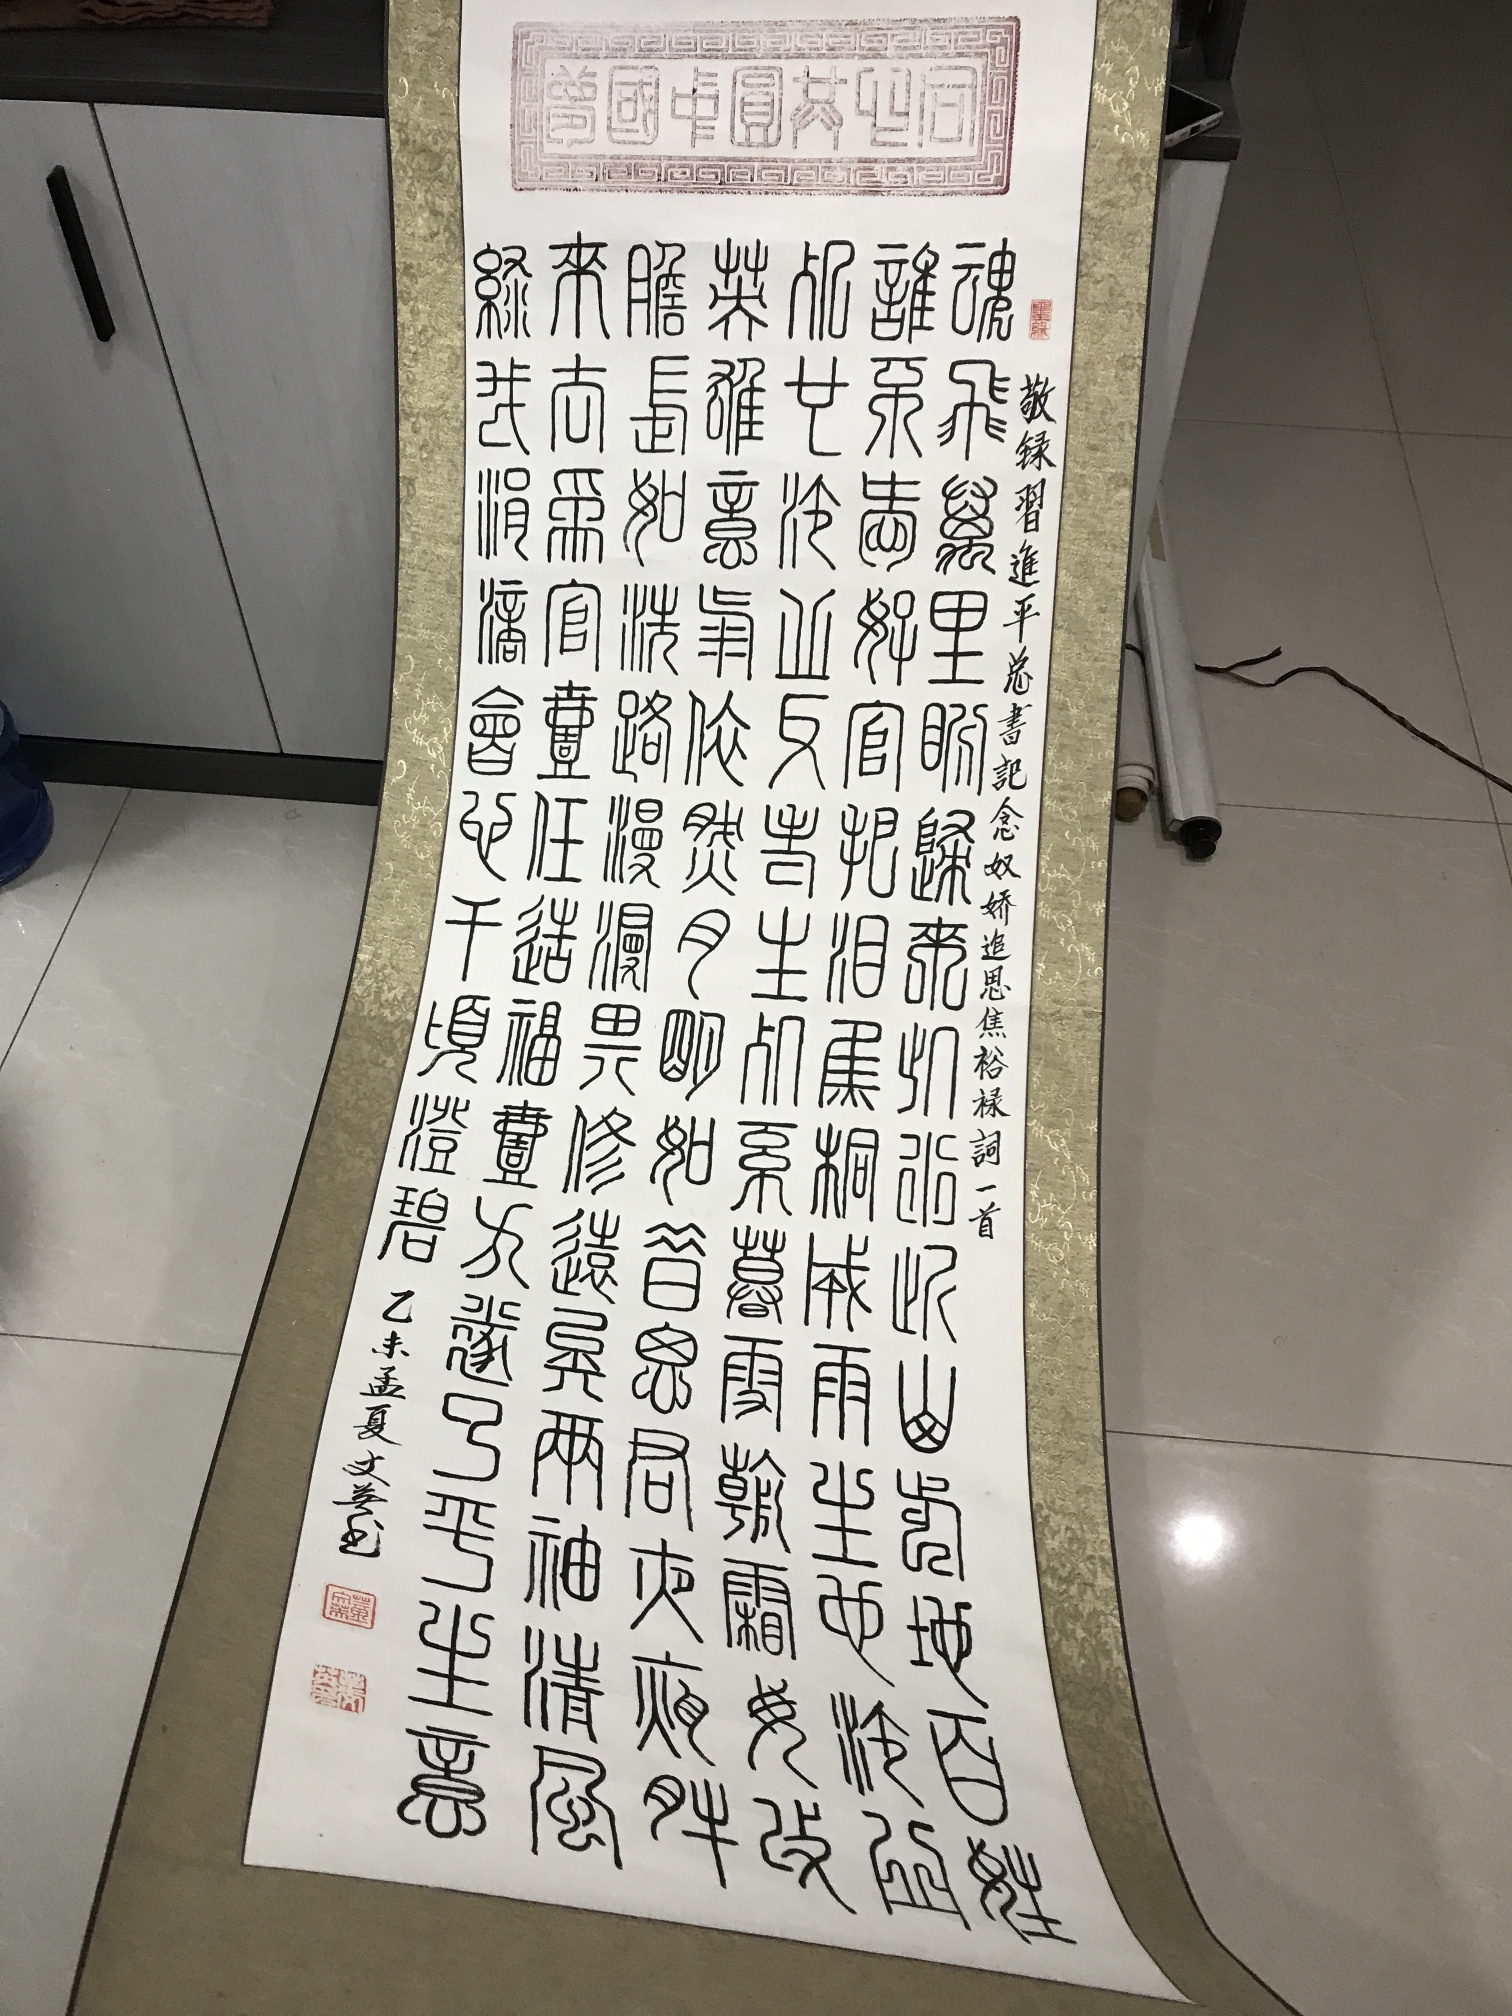 同心共圓中國夢
敬録習進平总書記念奴娇追思焦裕禄詞一首
魂飛萬里盼歸來此水此山此地百姓
誰不愛好官把淚焦桐成雨生也沙丘
死也沙丘父老生死系暮雪朝霜毋改
英雄意氣依然月明如昔思君夜夜肝
膽長如洗路漫漫其修遠矣兩袖清風
來去為官壹任造福壹方遂了平生意
綠我涓滴會它千頃澄碧
乙未孟夏文英書